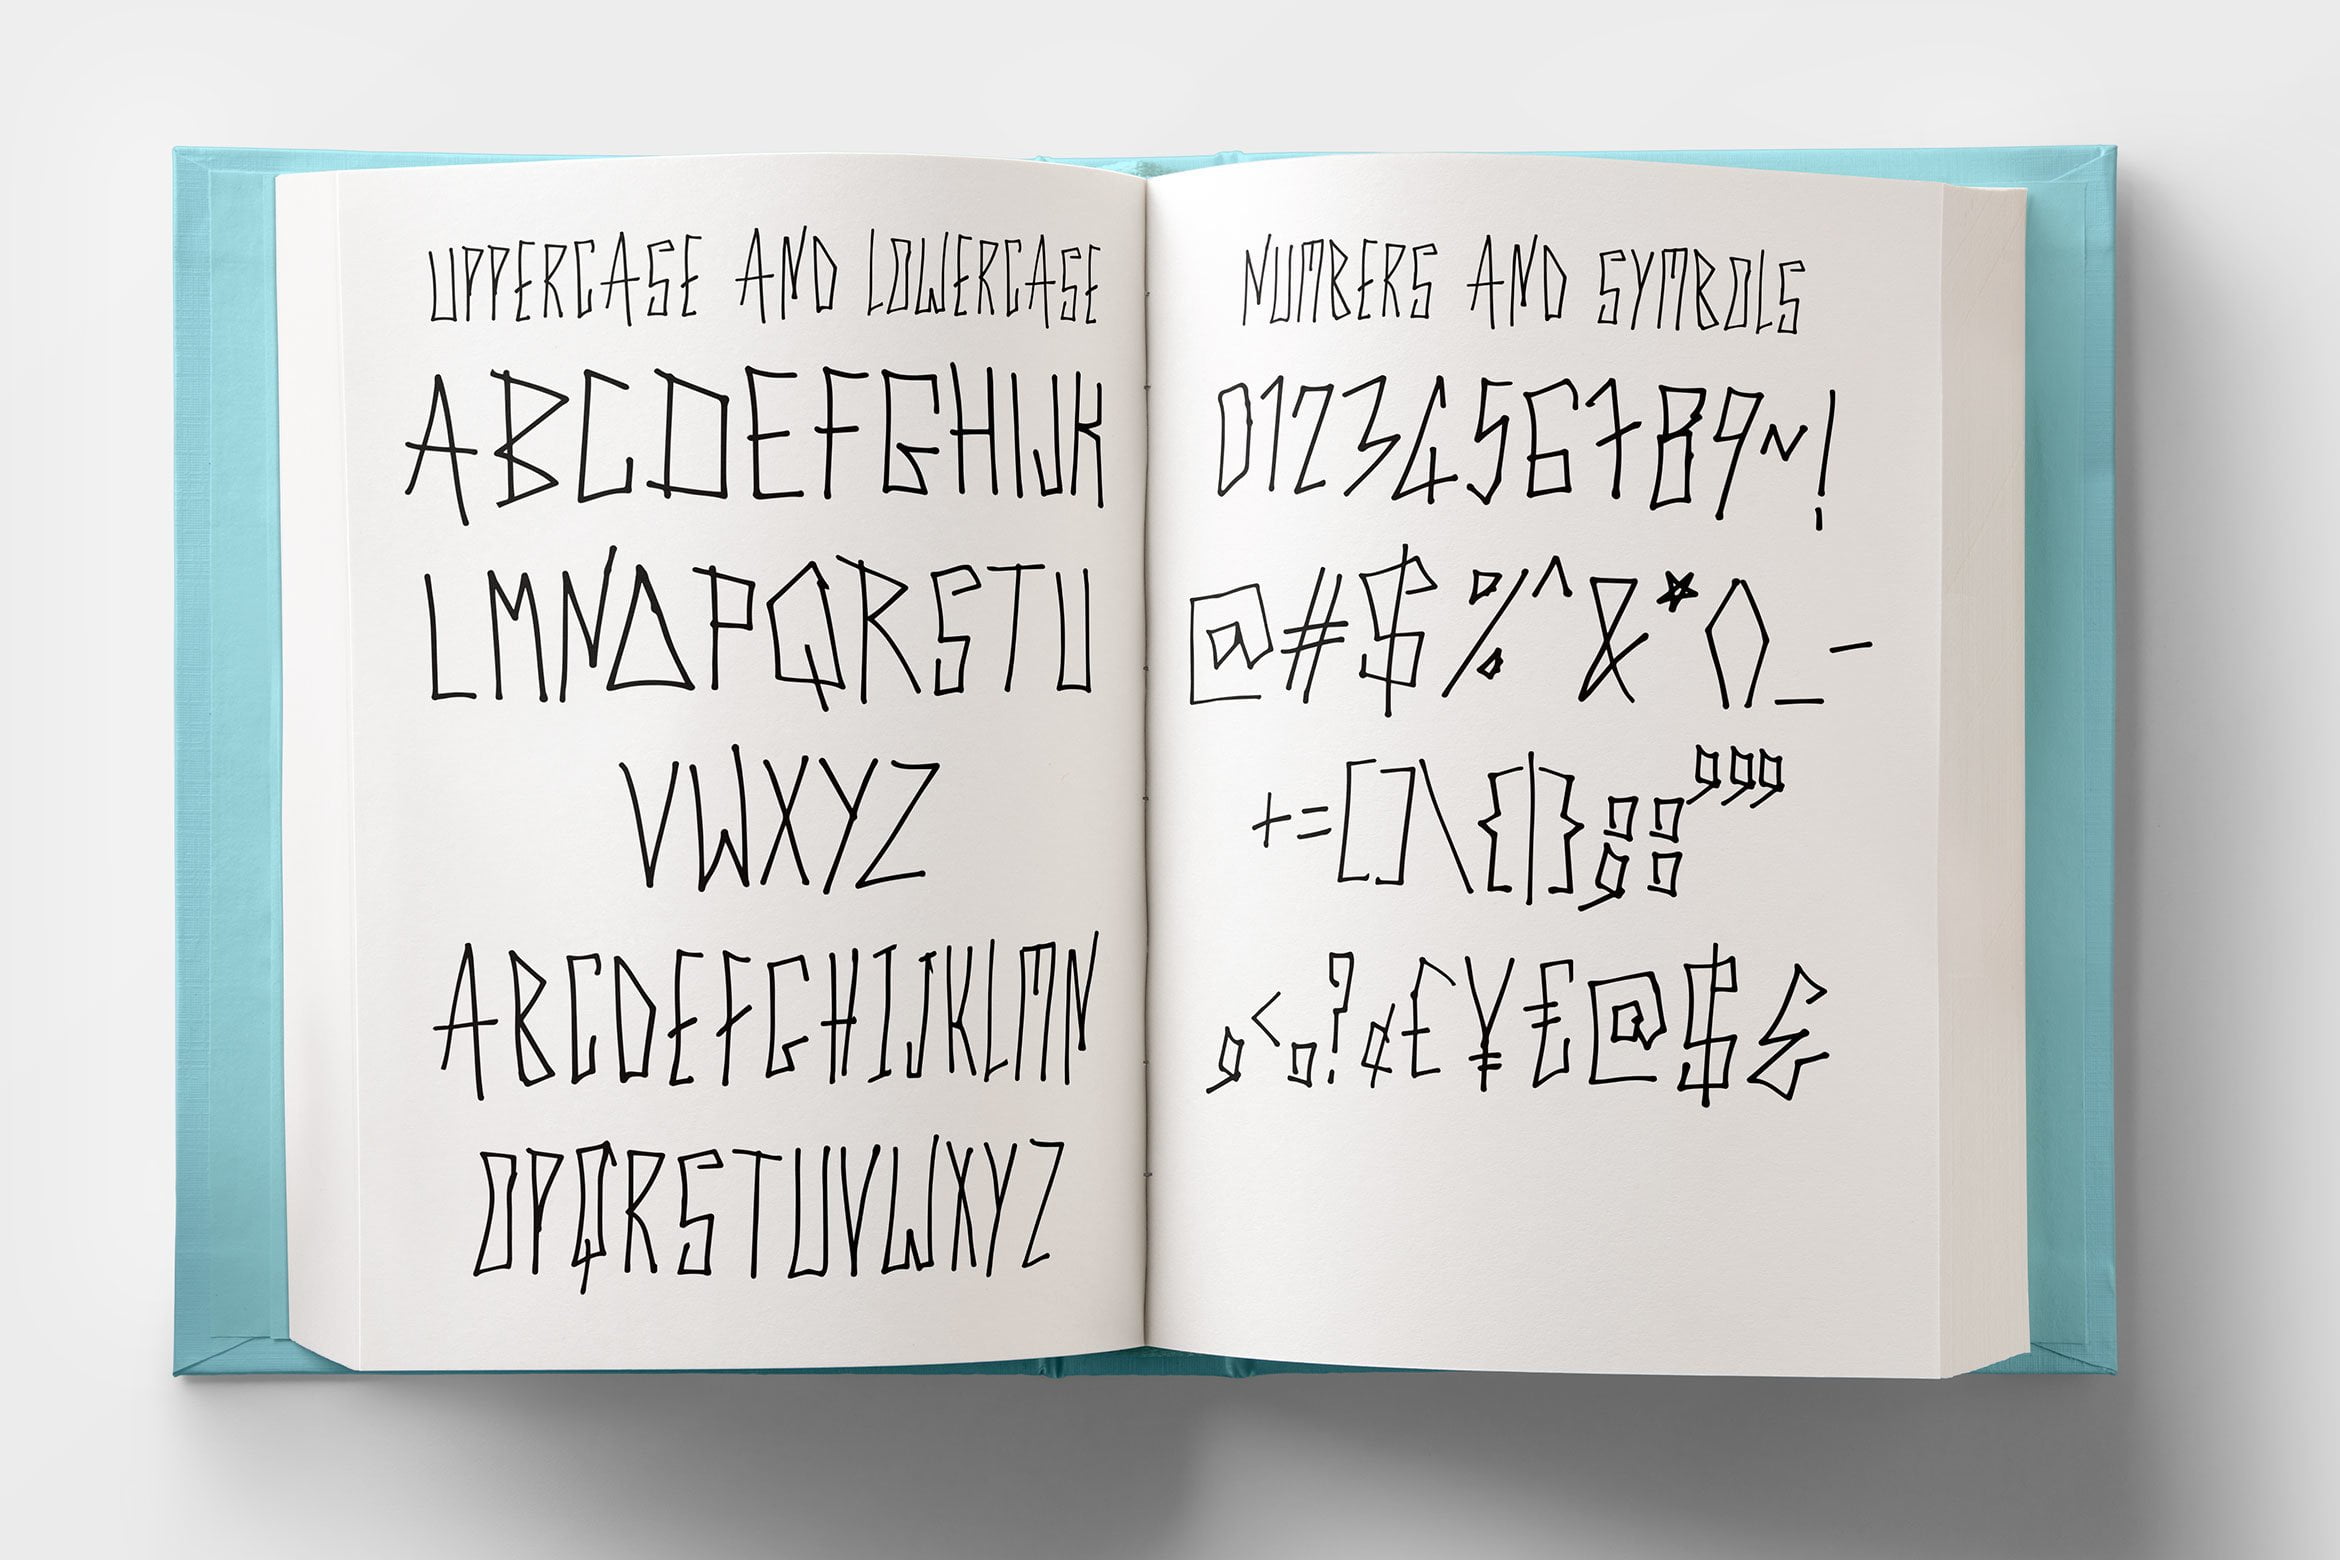 UPPERCASE AND LOWERCASE
ABCDEFGHIJK
LMNOPQRSTU
VWXYZ
ABCDEFGHIJKLMN
OPQRSTUVWXYZ
NUMBERS AND SYMBOLS
0123456789~!
@#$%^&*()_-
+=[]\{|};:'"
,<.?¢£¥€@$&